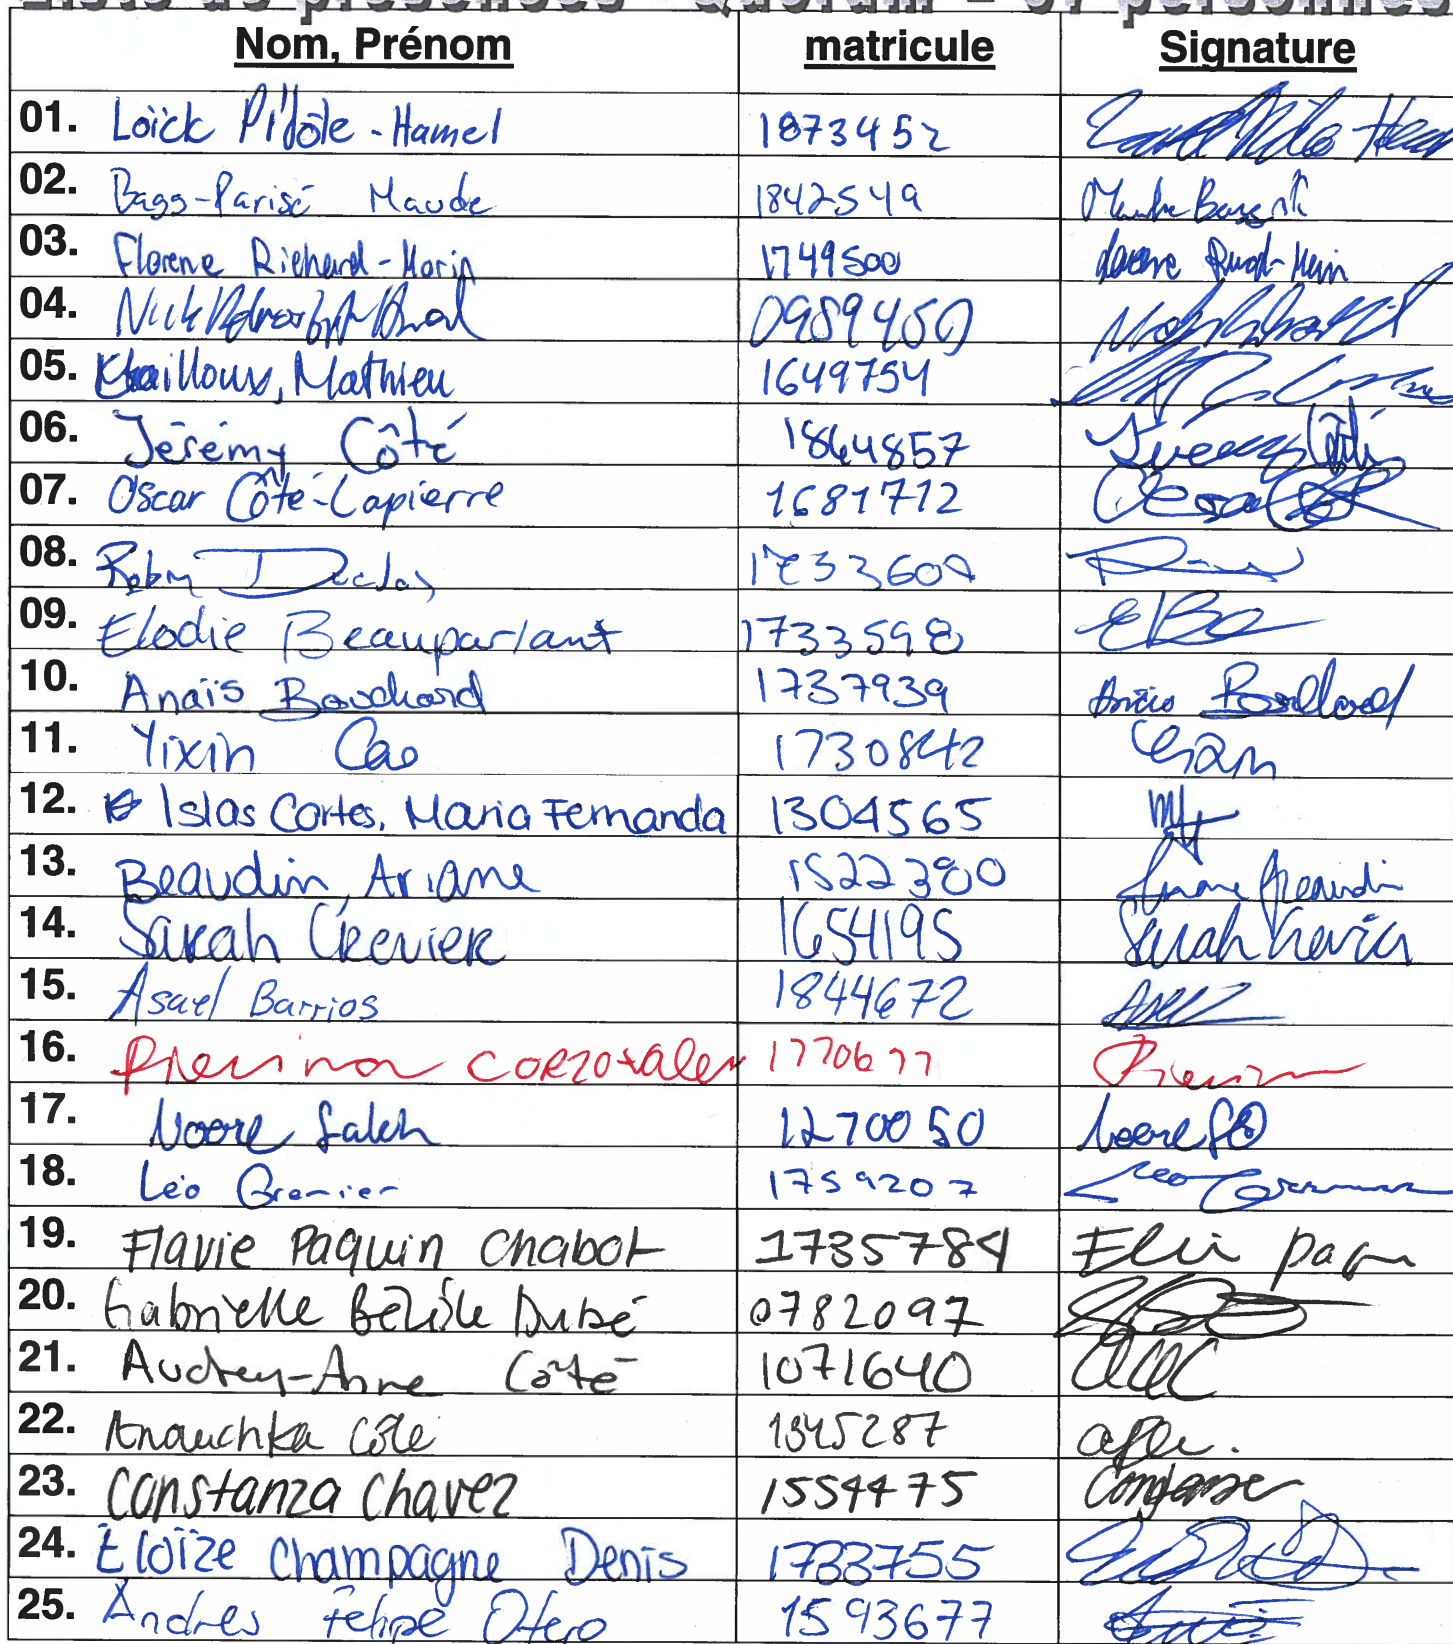 Liste de présences - Quorum = 57 personnes
Nom, Prénom matricule Signature
01. Loïck Pilôte-Hamel 1873452
02. Bagg-Parisé Maude 1842549
03. Florence Richard-Morin 1749500
04. Nick 0989450
05. Khailloux, Mathieu 1649754
06. Jérémy Côté 1864857 Jérémy Côté
07. Oscar Côté-Lapierre 1681712
08. Robin Duclos 1733609
09. Elodie Beauparlant 1733598 EBe
10. Anaïs Bouchard 1737939 Anaïs Bouchard
11. Yixin Cao 1730842
12. Islas Cortes, Maria Fernanda 1304565
13. Beaudin, Ariane 1522380 Ariane Beaudin
14. Sarah Crevier 1654195 Sarah Crevier
15. Asael Barrios 1844672
16. Pierina CORZO 1770677 Pierina
17. Noore Saleh 1270050 Noore
18. Léo Grenier 1759207 Leo Grenier
19. Flavie Paquin Chabot 1735784
20. Gabrielle Bélisle Dubé 0782097
21. Audrey-Anne Côté 1071640
22. Anouchka Côté 1845287
23. Constanza Chavez 1554475
24. Éloïze Champagne Denis 1733755
25. Andres Felipe Otero 1593677